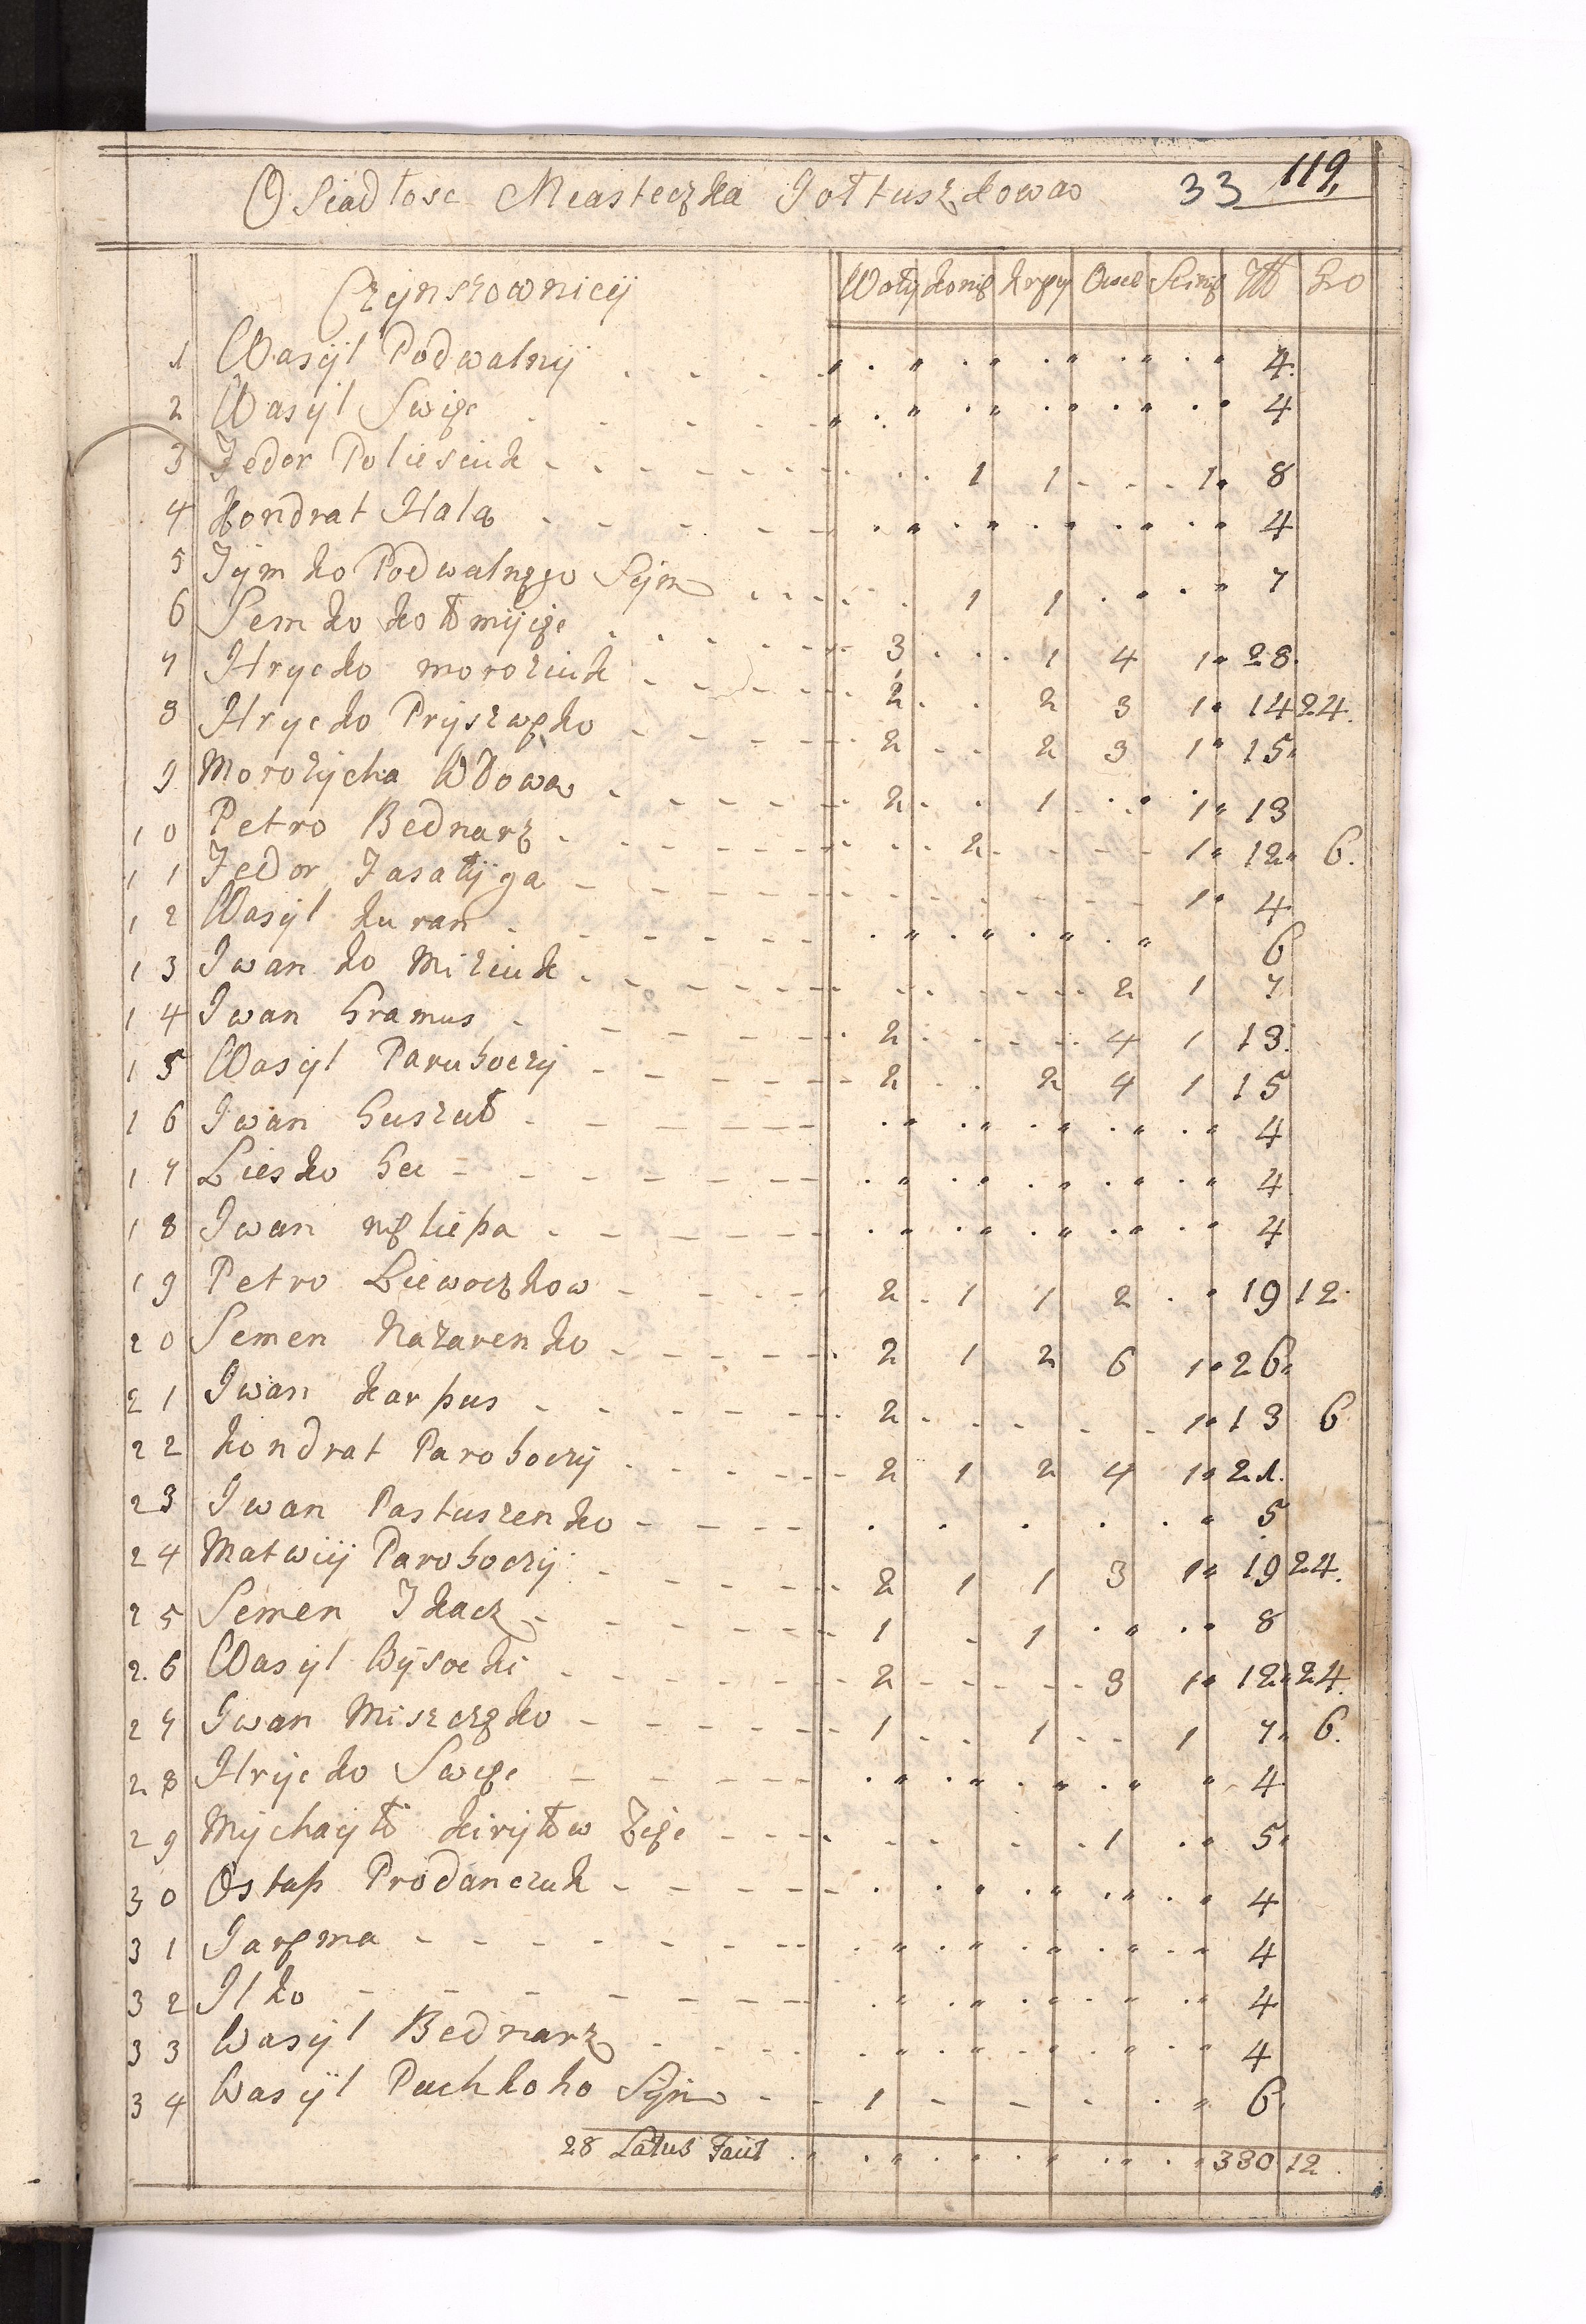 Osiadłosc Miasteczka Jołtuszkowa 33 119.
Czynszownicy Woły Konie Krowy Owce Swinie Zł Gro
1 Wasyl Podwalny 4.
2 Wasyl Swiże 4
3 Fedor Poliesciuk 1 1 1 8
4 Kondrat Hala 4
5 Tymko Podwalnego Syn 1 1 7
6 Semko Kołomyice 3 1 4 1 28.
7 Hrycko moroziuk 2 2 3 1 14 24.
8 Hrycko Pryszwezko 2 2 3 1 15
9 Morozycha Wdowa 2 1 1 13
10 Petro Bednarz 2 1 12 6.
11 Fedor Zasałyga 1 4
12 Wasyl Kuran 6
13 Iwanko Miziuk 2 1 7
14 Iwan Hramus 2 4 1 13.
15 Wasyl Paruboczy 2 2 4 1 15
16 Iwan Huszuł 4
17 Liesko 4
18 Iwan nesliepa 4
19 Petro Liewoczkow 2 1 1 2 19 12.
20 Semen Nazarenko 2 1 2 6 1 26
21 Iwan Karpus 2 1 13 6
22 Kondrat Paroboczy 2 1 2 4 1 21.
23 Iwan Pastuszenko 5
24 Matwiy Paroboczy 2 1 1 3 1 19 24.
25 Semen Tkacz 1 1 8
26 Wasyl Wysocki 2 3 1 12 24.
27 Iwan Miszczenko 1 1 1 7 6.
28 Hrycko Sweże 4
29 Mychayło Kiryłow 1 5
30 Ostap Prodanczuk 4
31 Jarema 4
32 Ilko 4
33 Wasyl Bednarz 4
34 Wasyl Puchkoho Syn 1 6.
28 Latus Facit 330 12